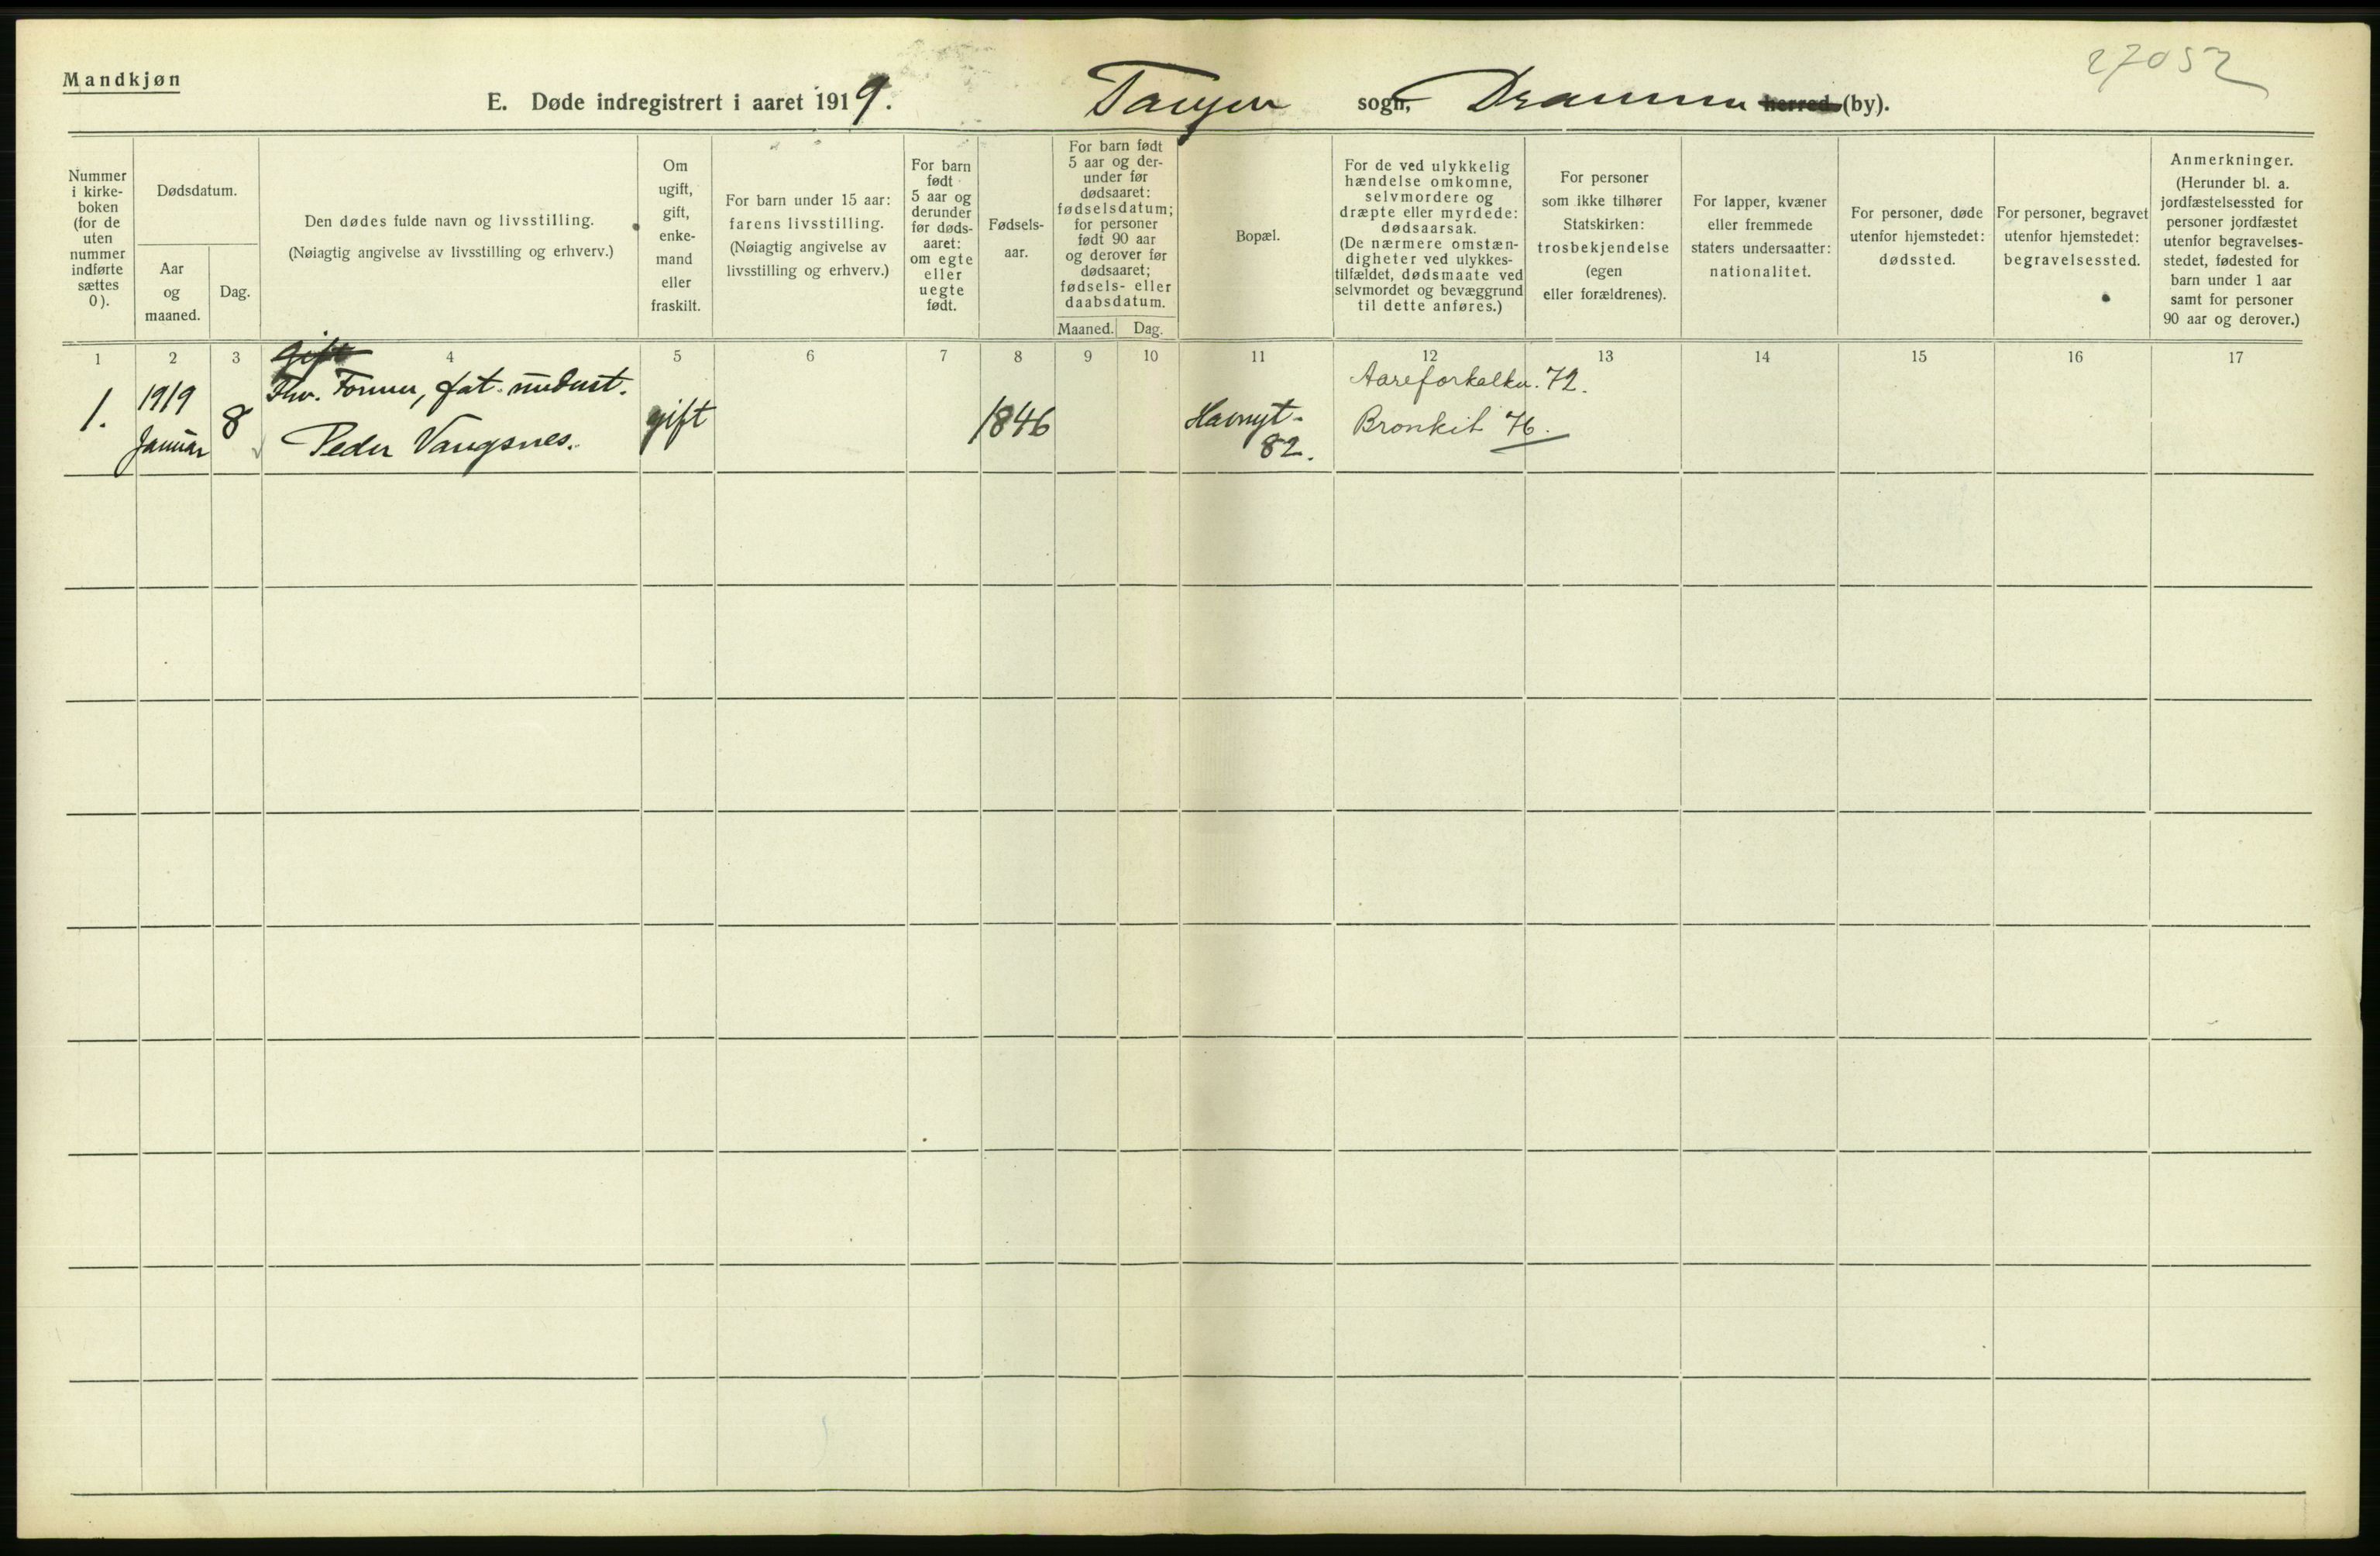 Mandkjøn
27052
E. Døde indregistrert i aaret 1919. Tangen sogn, Drammen herred (by).
Nummer
i kirke-
boken
(for de
uten
nummer
indførte
sættes
0).
Dødsdatum.
Aar
og
maaned.
Dag.
Den dødes fulde navn og livsstilling.
(Nøiagtig angivelse av livsstilling og erhverv.)
Om
ugift,
gift,
enke-
mand
eller
fraskilt.
For barn under 15 aar:
farens livsstilling.
(Nøiagtig angivelse av
livsstilling og erhverv.)
For barn
født
5 aar og
derunder
før døds-
aaret:
om egte
eller
uegte
født.
Fødsels-
aar.
For barn født
5 aar og der-
under før
dødsaaret:
fødselsdatum;
for personer
født 90 aar
og derover før
dødsaaret;
fødsels- eller
daabsdatum.
Maaned. Dag.
Bopæl.
For de ved ulykkelig
hændelse omkomne,
selvmordere og
dræpte eller myrdede:
dødsaarsak.
(De nærmere omstæn-
digheter ved ulykkes-
tilfældet, dødsmaate ved
selvmordet og bevæggrund
til dette anføres.)
For personer
som ikke tilhører
Statskirken:
trosbekjendelse
(egen
eller forældrenes).
For lapper, kvæner
eller fremmede
staters undersaatter:
nationalitet.
For personer, døde
utenfor hjemstedet:
dødssted.
For personer, begravet
utenfor hjemstedet:
begravelsessted.
Anmerkninger.
(Herunder bl. a.
jordfæstelsessted for
personer jordfæstet
utenfor begravelses-
stedet, fødested for
barn under 1 aar
samt for personer
90 aar og derover.)
1 2 3 4 5 6 7 8 9 10 11 12 13 14 15 16 17
gift
1.
1919
Januar
8
Fhv. Former, fat. underst.
Peder Vangsnes.
gift
1846
Havngt-
82.
Aareforkalkn. 72.
Bronkit 76.